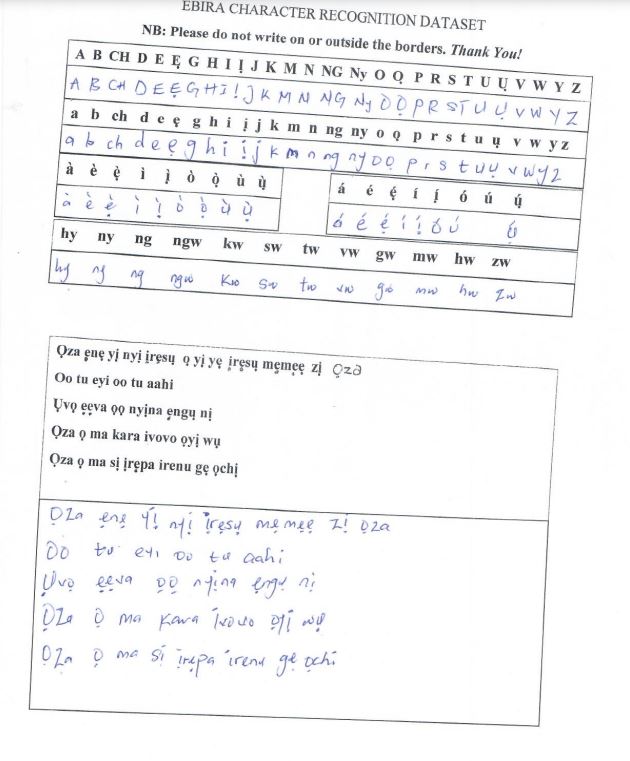 EBIRA CHARACTER RECOGNITION DATASET
NB: Please do not write on or outside the borders. Thank You!
A B CH D E Ẹ G H I Ị J K M N NG Ny O Ọ P R S T U Ụ V W Y Z
A B CH D E Ẹ G H I Ị J K M N NG Ny O Ọ P R S T U Ụ V W Y Z
a b ch d e ẹ g h i ị j k m n ng ny o ọ p r s t u ụ v w y z
a b ch d e ẹ g h i ị j k m n ng ny o ọ p r s t u ụ v w y z
à è ẹ̀ ì ị̀ ò ọ̀ ù ụ̀
à è ẹ̀ ì ị̀ ò ọ̀ ù ụ̀
á é ẹ́ í ị́ ó ú ụ́
á é ẹ́ í ị́ ó ú ụ́
hy ny ng ngw kw sw tw vw gw mw hw zw
hy ny ng ngw kw sw tw vw gw mw hw zw
Ọza ẹnẹ yị nyị ịrẹsụ ọ yị yẹ ịrẹsụ mẹmẹẹ zị Ọza
Oo tu eyi oo tu aahi
Ụvọ ẹẹva ọọ nyịna ẹngụ nị
Ọza ọ ma kara ivovo ọyị wụ
Ọza ọ ma sị ịrẹpa irenu gẹ ọchị
Ọza ẹnẹ yị nyị ịrẹsụ mẹmẹẹ zị Ọza
Oo tu eyi oo tu aahi
Ụvọ ẹẹva ọọ nyịna ẹngụ nị
Ọza Ọ ma kara ivovo ọyị wụ
Ọza Ọ ma sị ịrẹpa irenu gẹ ọchị